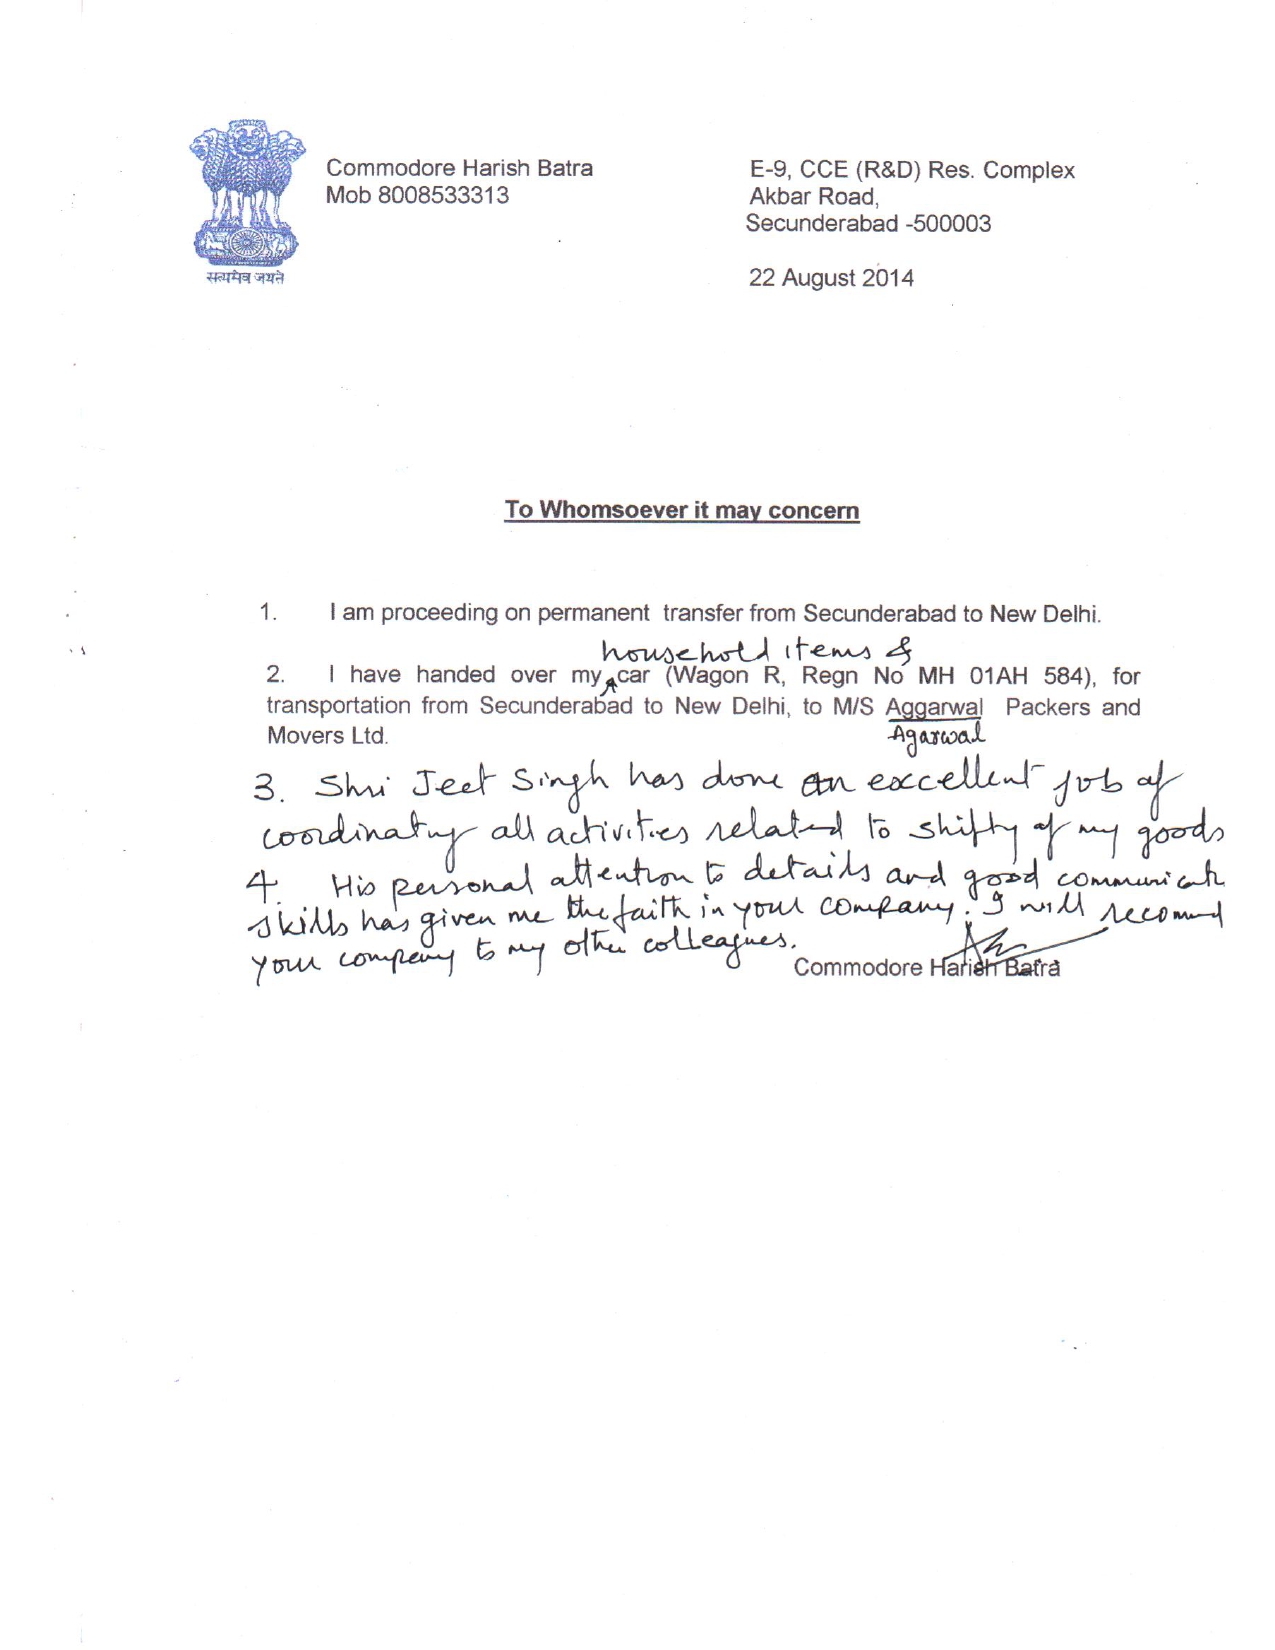 Commodore Harish Batra
Mob 8008533313
E-9, CCE (R&D) Res. Complex
Akbar Road,
Secunderabad -500003
22 August 2014
सत्यमेव जयते
To Whomsoever it may concern
1. I am proceeding on permanent transfer from Secunderabad to New Delhi.
household items &
2. I have handed over my car (Wagon R, Regn No MH 01AH 584), for
transportation from Secunderabad to New Delhi, to M/S Aggarwal Packers and
Movers Ltd.
Agarwal
3. Shri Jeet Singh has done an excellent job of
coordinating all activities related to shifting of my goods
4. His personal attention to details and good communicatn
skills has given me the faith in your company. I will recommend
your company to my other colleagues.
Commodore Harish Batra